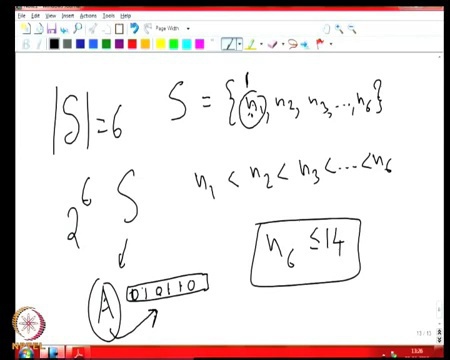 File Edit View Insert Actions Tools Help
Page Width
|S| = 6
S = {n₁, n₂, n₃, ..., n₆}
1
n₁ < n₂ < n₃ < ... < n₆
2⁶ S
n₆ ≤ 14
A
010110